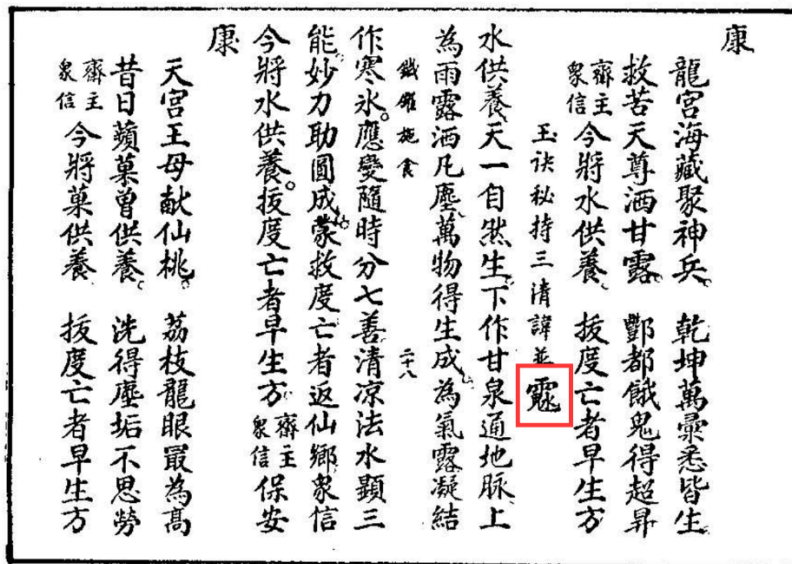 康
龍宮海藏聚神兵。 乾坤萬彙悉皆生。
救苦天尊洒甘露。 酆都餓鬼得超昇
齋主
衆信
今將水供養。 拔度亡者早生方
玉訣秘持三清諱並
水供養。天一自然生下作甘泉通地脉上
為雨露洒凡塵萬物得生成。為氣露凝結
鐵錐施食 二十八
作寒氷。應變隨時分七善清凉法水顯三
能。妙力助圓成。蒙救度亡者返仙鄉衆信
今將水供養。拔度亡者早生方。
齋主
衆信
保安
康
天宮王母献仙桃。 荔枝龍眼㝡為高
昔日蘋菓曾供養。 洗得塵垢不思勞
齋主
衆信
今將菓供養 拔度亡者早生方